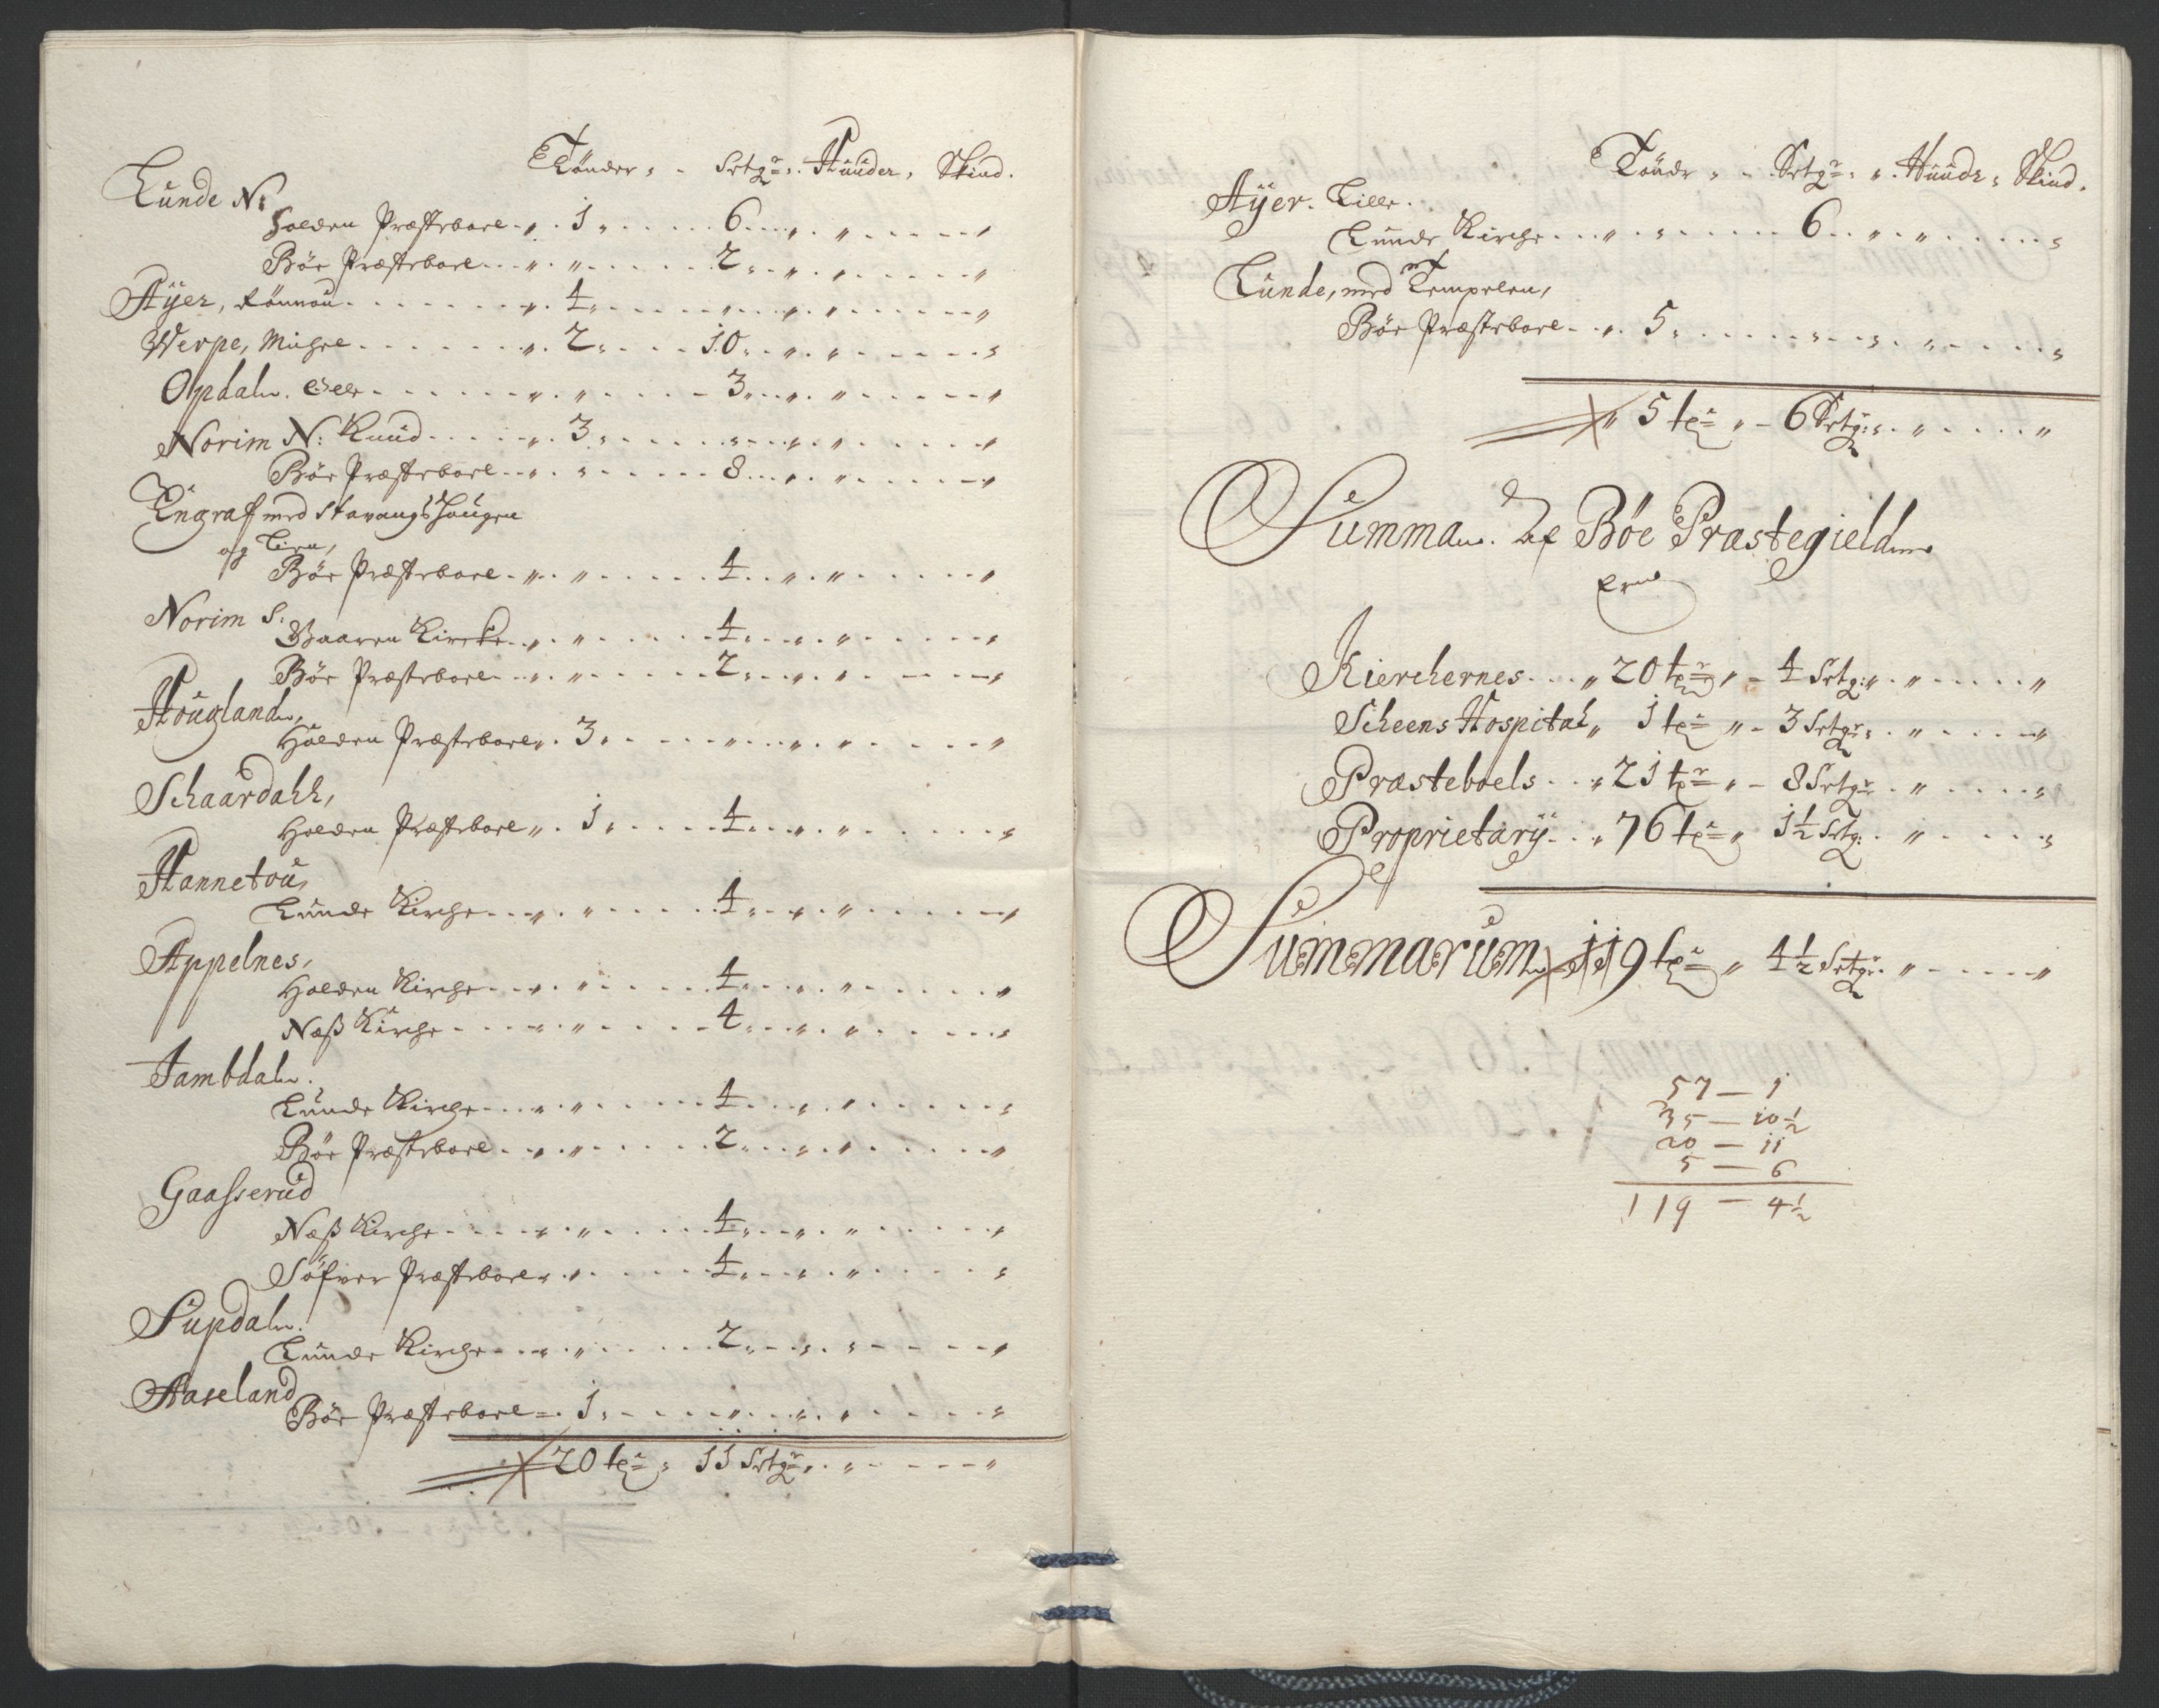 Tönder, - Setgr: Huuder, Skind.
Lunde N:
Holden Præsteboel 1 6
Böe Præsteboel 2
Aÿer, Rönnou 4
Werpe, Muhre 2 10
Opdal. Eier 3
Norim N: Knud 3
Böe Præsteboel 8
Engraf med Stavangs Hougen
og Lien,
Böe Præsteboel 4
Norim S:
Kircke 4
Böe Præsteboel 2
Hougland,
Holden Præsteboel 3
Schaardahl,
Holden Præsteboel 1 4
Hannetou,
Lunde Kirche 4
Appelnes,
Holden Kirche 4
Næß Kirche 4
Jambdal.
Lunde Kirche 4
Böe Præsteboel 2
Gaasserud
Næß Kirche 4
Præsteboel 4
Supdal.
Lunde Kirche 2
Aaseland
Böe Præsteboel 1
20 tr 11 Setgr
Töndr - Setgr: Huudr, Skind.
Aÿer. Lille.
Lunde Kirche 6
Lunde, med Tempelen,
Böe Præsteboel 5
5 tr - 6 Setgr:
Summa. Af Böe Præstegield
Kierchernes 20 tr - 4 Setgr:
Scheens Hospital 1 tr - 3 Setgr:
Præsteboels 21 tr - 8 Setgr
Proprietarÿ 76 tr 1½ Setgr:
Summarum 119 tr 4½ Setgr:
57 — 1
35 — 10½
20 — 11
5 — 6
119 — 4½